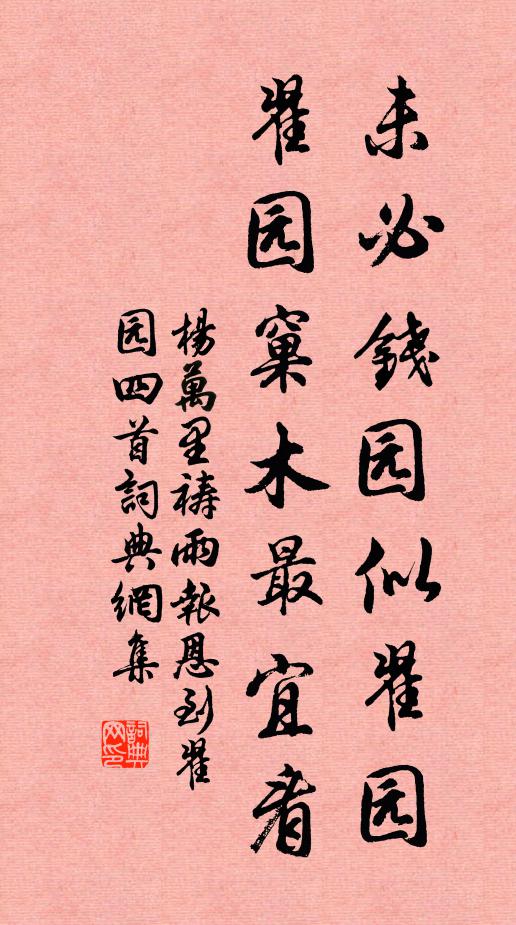 未必錢园似翟园
翟园窠木最宜看
楊萬里禱雨報恩到翟
园四首詞典網集
詞典
网印